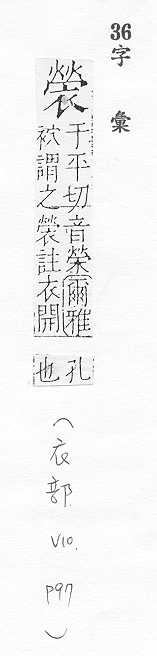 36字 彙
褮
于平切音榮爾雅
袕謂之褮註衣開
孔
也
(衣部 V10. P97)